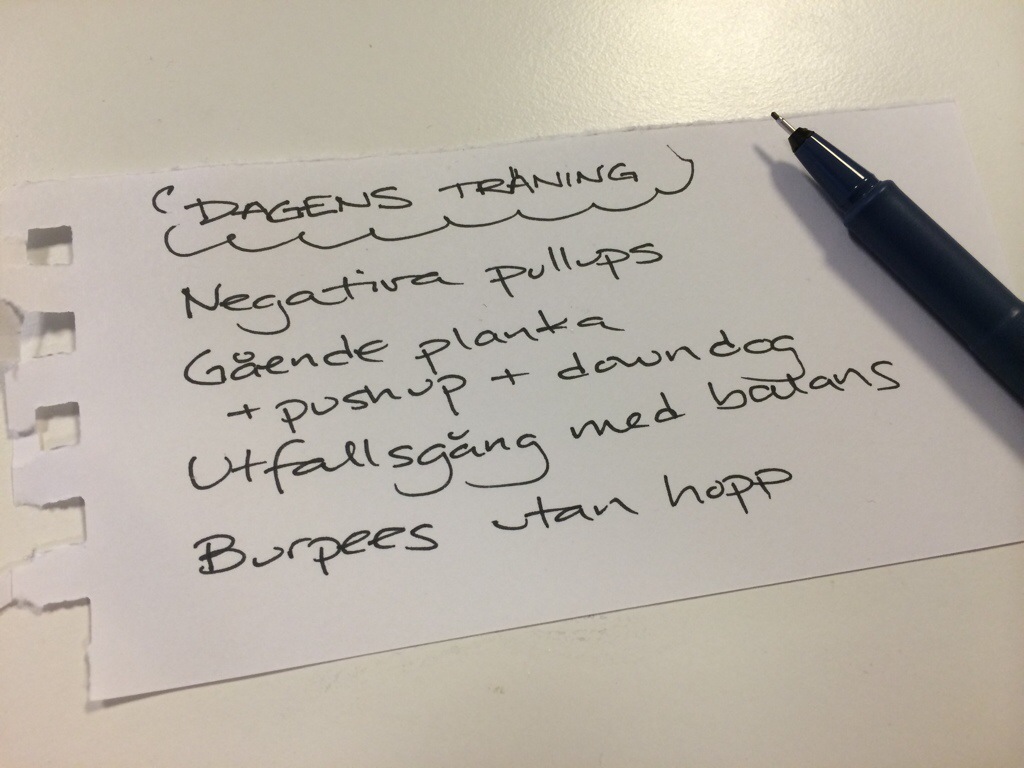 DAGENS TRÄNING
Negativa pullups
Gående planka
+ pushup + downdog
Utfallsgång med balans
Burpees utan hopp